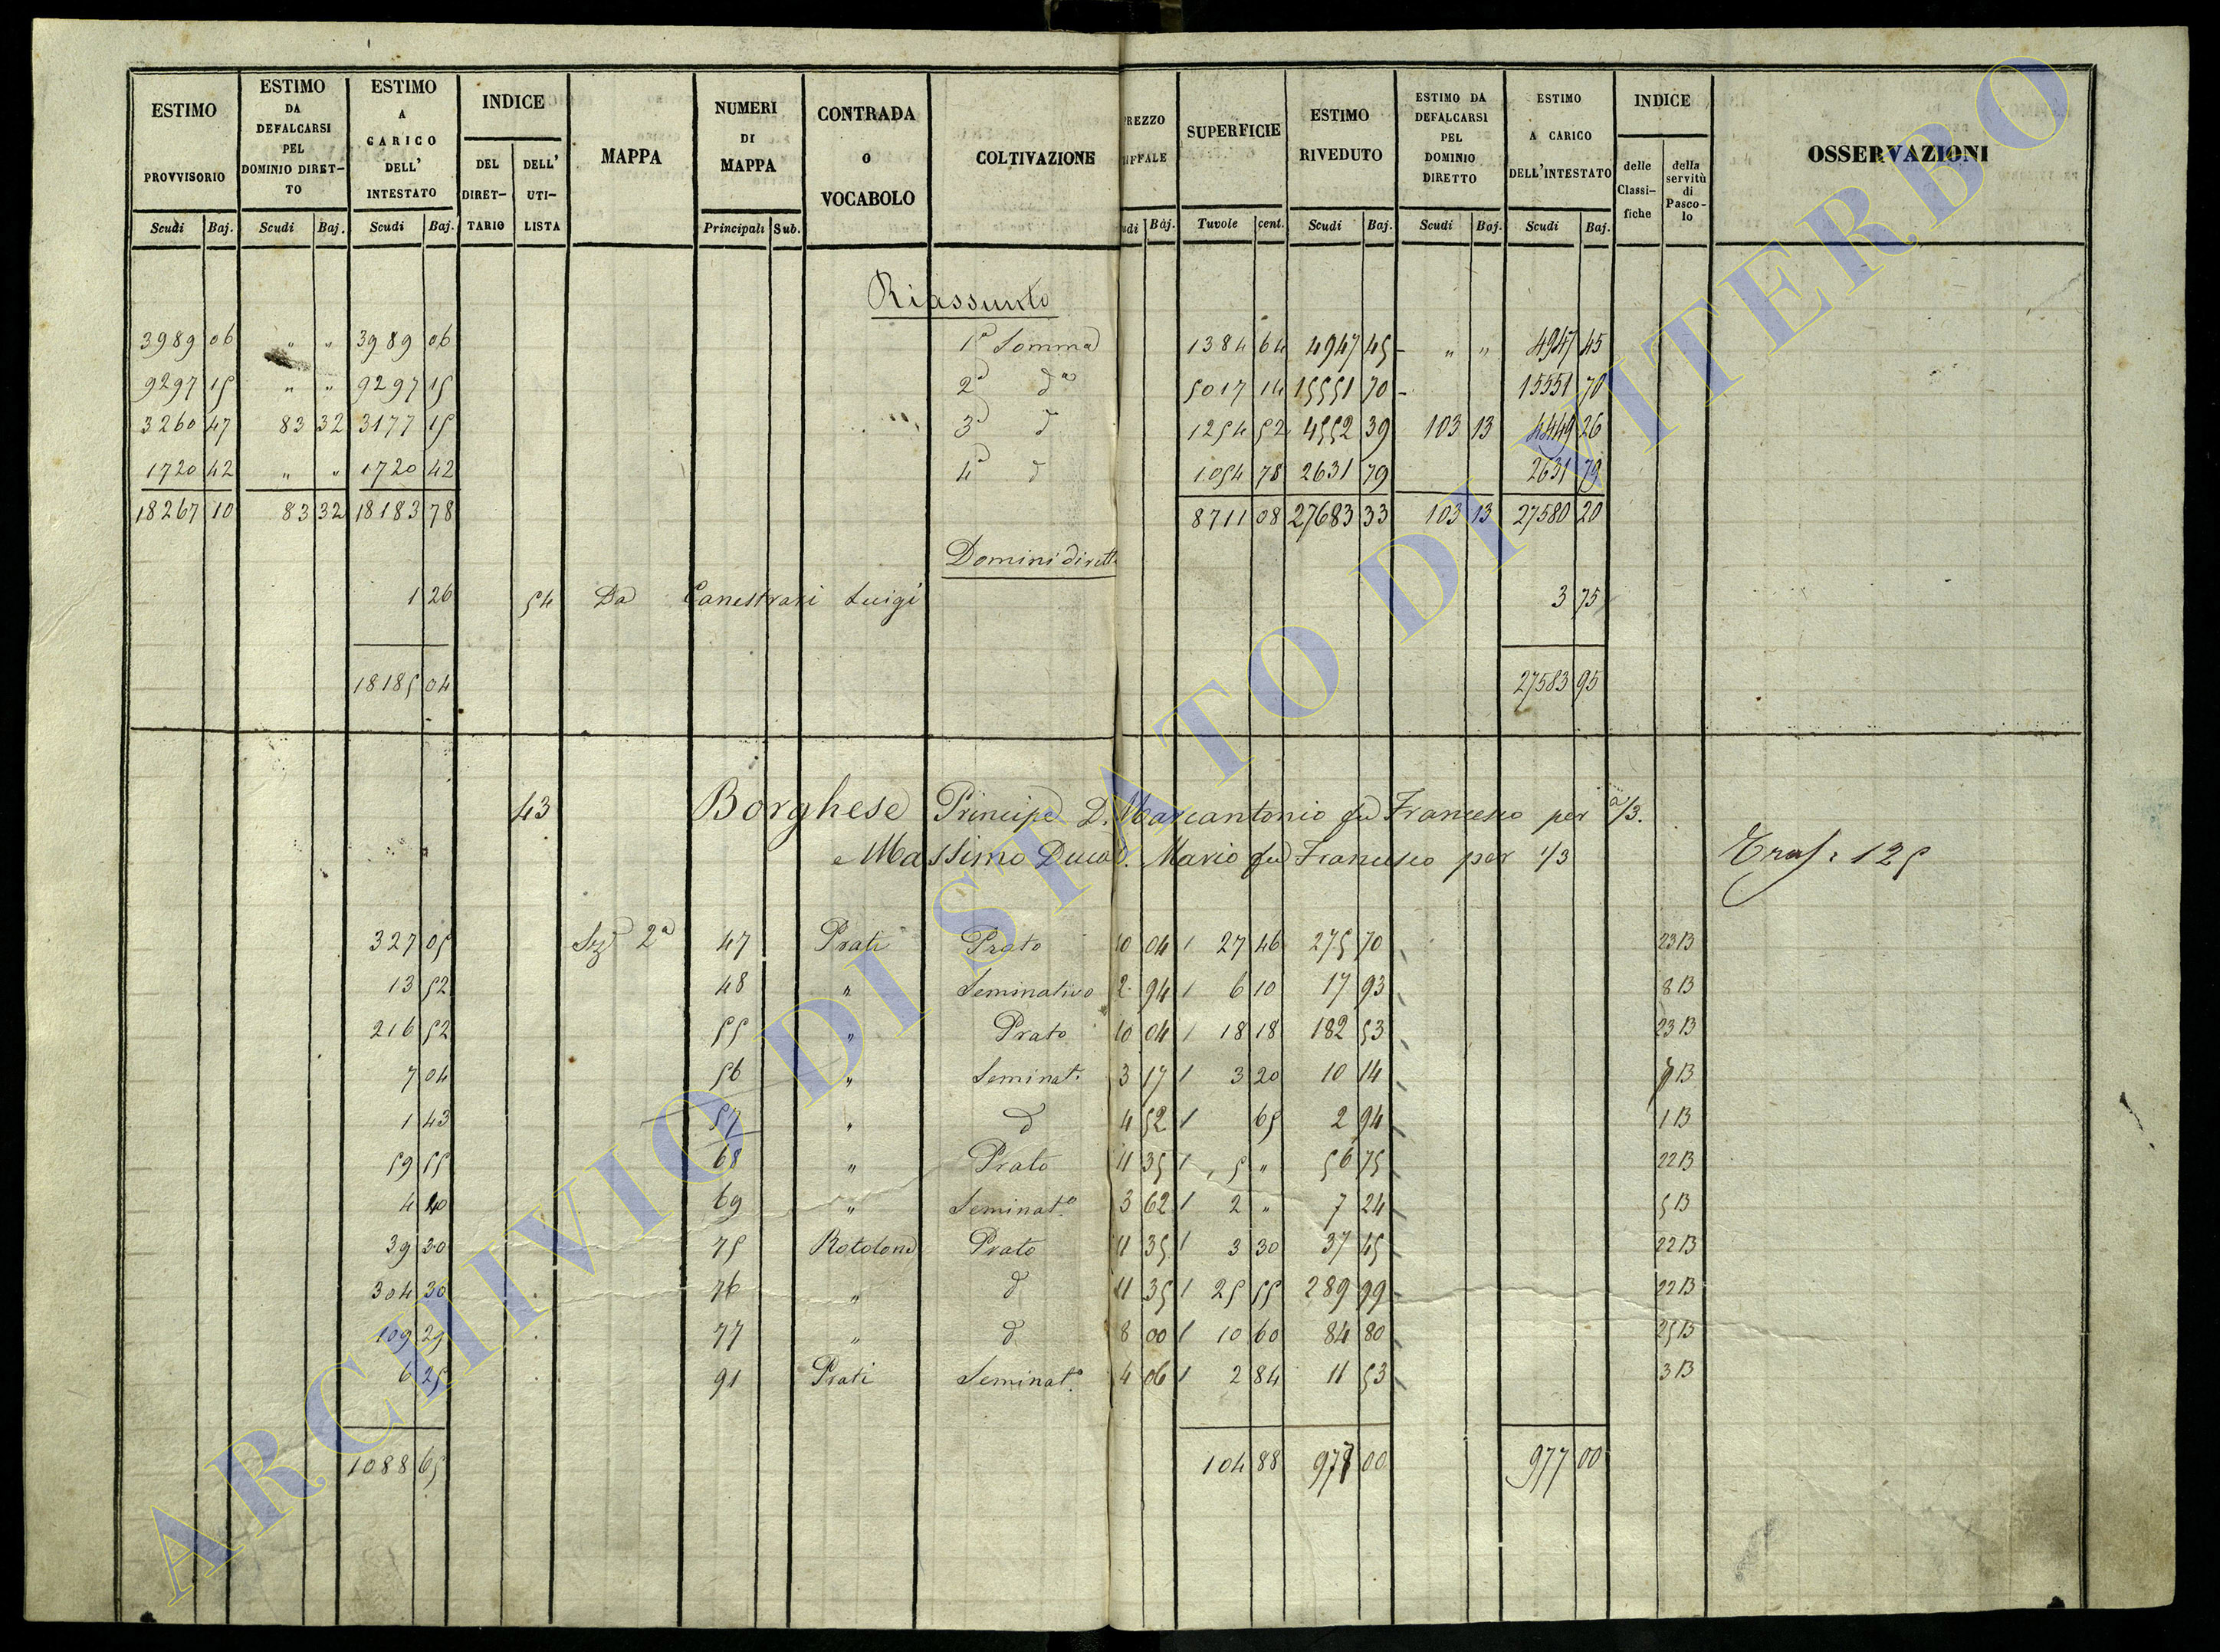 ESTIMO PROVVISORIO | ESTIMO DA DEFALCARSI PEL DOMINIO DIRETTO | ESTIMO A CARICO DELL' INTESTATO | INDICE DEL DIRETTARIO | DELL' UTILISTA | MAPPA | NUMERI DI MAPPA | CONTRADA O VOCABOLO | COLTIVAZIONE | REZZO IFFALE | SUPERFICIE | ESTIMO RIVEDUTO | ESTIMO DA DEFALCARSI PEL DOMINIO DIRETTO | ESTIMO A CARICO DELL'INTESTATO | INDICE delle Classifiche | della servitù di Pascolo | OSSERVAZIONI
Scudi Baj. | Scudi Baj. | Scudi Baj. | Principali Sub. | udi Baj. | Tavole cent. | Scudi Baj. | Scudi Baj. | Scudi Baj.
Riassunto
3989 06 " " 3989 06 1ª Somma 1384 64 4947 45 " " 4947 45
9297 15 " " 9297 15 2ª dª 5017 14 15551 70 15551 70
3260 47 83 32 3177 15 3ª d 1254 52 4552 39 103 13 4449 26
1720 42 " " 1720 42 4ª d 1054 78 2631 79 2631 79
18267 10 83 32 18183 78 8711 08 27683 33 103 13 27580 20
Domini diretti
1 26 54 Da Canestrari Luigi 3 75
18185 04 27583 95
43 Borghese Principe D. Marcantonio fu Francesco per 2/3.
e Massimo Duca D. Mario fu Francesco per 1/3 Trasf: 125
327 05 Sez 2ª 47 Prati Prato 10 04 / 27 46 275 70 23 B
13 52 48 " Seminativo 2 94 / 6 10 17 93 8 B
216 52 55 " Prato 10 04 / 18 18 182 53 23 B
7 04 56 " Seminat. 3 17 / 3 20 10 14 7 B
1 43 57 " d 4 52 / 65 2 94 1 B
59 55 68 " Prato 11 35 / 5 " 56 75 22 B
4 40 69 " Seminat.º 3 62 / 2 " 7 24 5 B
39 30 75 Rotolone Prato 11 35 / 3 30 37 45 22 B
304 30 76 " d 11 35 / 25 55 289 99 22 B
109 29 77 " d 8 00 / 10 60 84 80 25 B
6 25 91 Prati Seminat.º 4 06 / 2 84 11 53 3 B
1088 65 104 88 977 00 977 00
ARCHIVIO DI STATO DI VITERBO